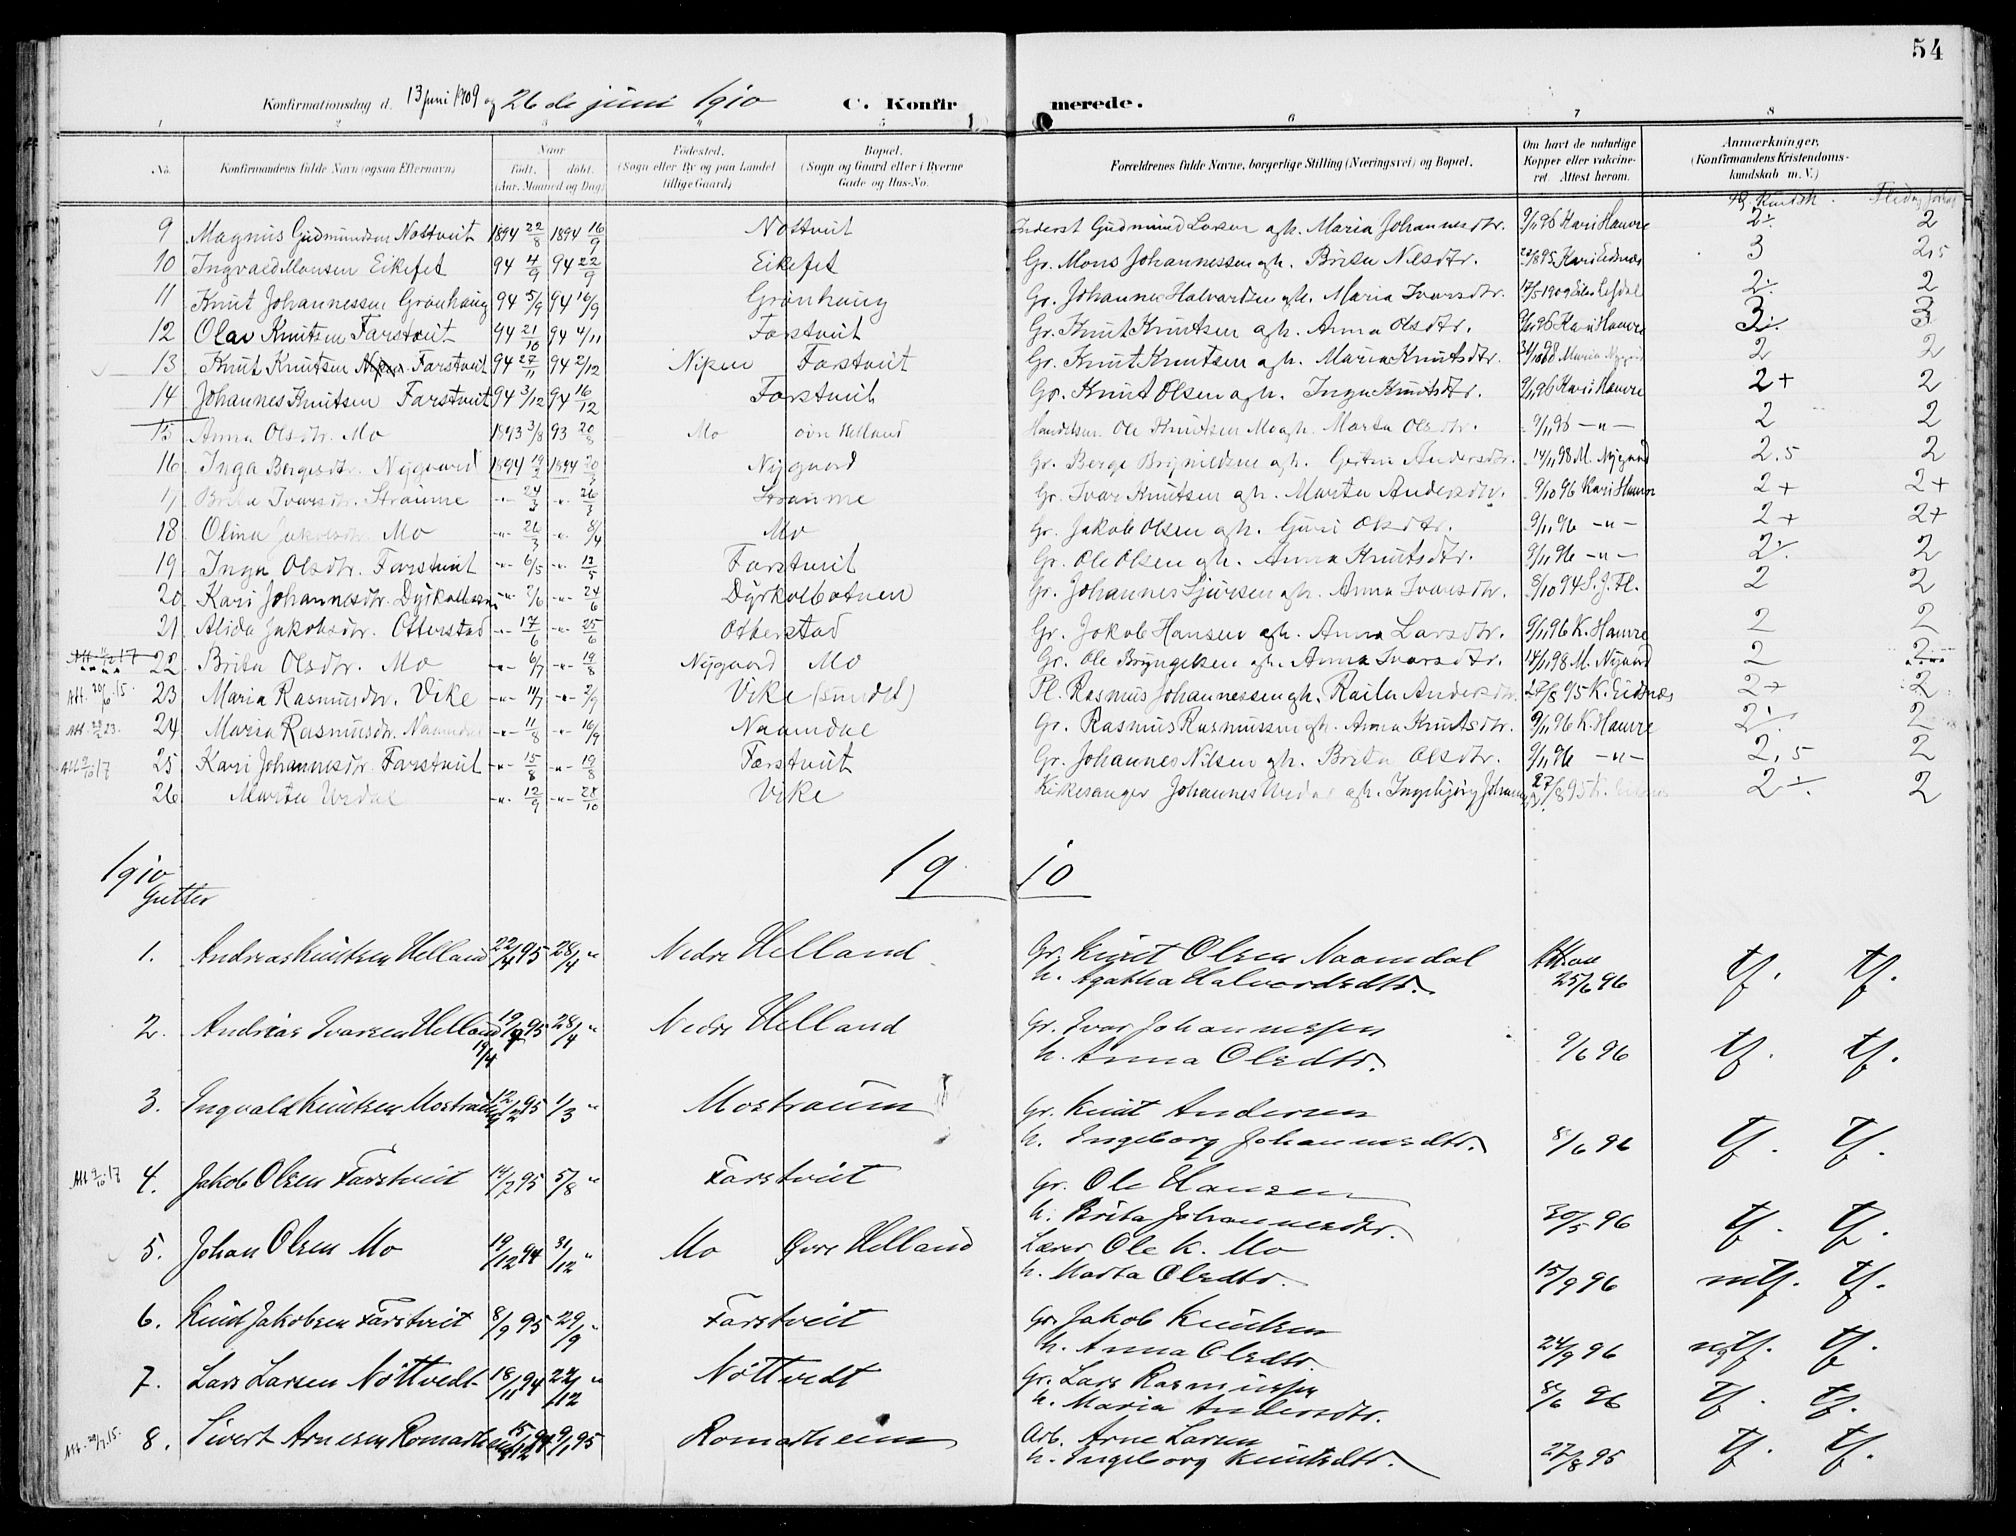 54
Konfirmationsdag d. 13 juni 1909 og 26 de juni 1910 C. Konfirmerede.
1 2 3 4 5 6 7 8
No. Konfirmandens fulde Navn (ogsaa Efternavn) Naar født, døbt. (Aar, Maaned og Dag) Fødested. (Sogn eller By og paa Landet tillige Gaard) Bopæl. (Sogn og Gaard eller i Byerne Gade og Hus-No. Forældrenes fulde Navne, borgerlige Stilling (Næringsvei) og Bopæl. Om havt de naturlige Kopper eller vaccineret. Attest herom. Anmærkninger. (Konfirmandens Kristendomskundskab m. V.)
9 Magnus Gudmundsen Nottveit 1894 22/8 1894 16/9 Nottveit Inderst Gudmund Larsen agh. Maria Johannesdtr. 9/11 96 Kari Hauvre 2÷ 2
10 Ingvald Monsen Eikefet 94 4/9 94 22/9 Eikefet Gr. Mons Johannessen agh. Brita Nilsdtr. 3 2,5
11 Knut Johannessen Grønhaug 94 5/9 94 16/9 Grønhaug Gr. Johannes Halvardsen agh. Maria Ivarsdtr. 2÷ 2
12 Olav Knutsen Farstveit 94 21/10 94 4/11 Farstveit Gr. Knut Knutsen agh. Anna Olsdtr. 9/11 96 Kari Hauvre 3÷ 3
13 Knut Knutsen Nipen Farstveit 94 27/11 94 2/12 Nipen Farstveit Gr. Knut Knutsen agh. Maria Knutsdtr. 2 2
14 Johannes Knutsen Farstveit 94 3/12 94 16/12 Farstveit Gr. Knut Olsen agh. Inga Knutsdtr. 9/11 96 Kari Hauvre 2+ 2
15 Anna Olsdtr. Mo 1893 3/8 93 20/8 Mo øvre Helland Handelsm. Ole Knutsen Mo agh. Marta Olsdtr. 9/11 96 -"- 2 2
16 Inga Bergesdtr. Nygaard 1894 1894 Nygaard Gr. Berge Brynildsen agh. Gertrue Andersdtr. 14/11 98 M. Nygaard 2,5 2
17 Brita Ivarsdtr. Straume -"- 24/3 -"- 26/3 Straume Gr. Ivar Knutsen agh. Marta Andersdtr. 9/10 96 Kari Hauvre 2+ 2+
18 Olina Jakobsdtr. Mo -"- 26/3 -"- 8/4 Mo Gr. Jakob Olsen agh. Guri Olsdtr. 9/11 96 -"- 2+ 2+
19 Inga Olsdtr. Farstveit -"- 6/5 -"- 13/5 Farstveit Gr. Ole Olsen agh. Anna Knutsdtr. 9/11 96 -"- 2÷ 2
20 Kari Johannesdtr. Dyrkolbotnen -"- 2/6 -"- 24/6 Dyrkolbotnen Gr. Johannes Sjursen agh. Anna Ivarsdtr. 3/10 94 S. J. Fl. 2 2
21 Alida Jakobsdtr. Otterstad -"- 17/6 -"- 25/6 Otterstad Gr. Jakob Hansen agh. Anna Larsdtr. 9/11 96 K. Hauvre 2 2
22 Brita Olsdtr. Mo -"- 6/7 -"- 19/8 Nygaard Mo Gr. Ole Bryngelsen agh. Anna Ivarsdtr. 14/11 98 M. Nygaard 2 2
Att. 20/6 15. 23 Maria Rasmusdtr. Vike -"- 11/7 -"- 2/9 Vike (sundet) Pl. Rasmus Johannessen agh. Raila Andersdtr. 27/8 95 K. Eidsnæs 2+ 2
24 Maria Rasmusdtr. Naamdal -"- 11/8 -"- 16/9 Naamdal Gr. Rasmus Rasmussen agh. Anna Knutsdtr. 9/11 96 K. Hauvre 2÷ 2
Att 9/10 17 25 Kari Johannesdtr. Farstveit -"- 15/8 -"- 19/8 Farstveit Gr. Johannes Nilsen agh. Brita Olsdtr. 9/11 96 -"- 2,5 2
26 Marta Urdal -"- 12/9 -"- 28/10 Vike Kirkesanger Johannes Urdal agh. Ingebjørg 27/8 95 2÷ 2
1910 1910
Gutter
1. Andreas Knutsen Helland 22/4 95 28/4 " Nedre Helland Gr. Knut Olsen Naamdal
h. Agatha Halvordsdtr. 25/6 96 tf. tf.
2. Andreas Ivarsen Helland 95 28/4 " Nedre Helland Gr. Ivar Johannessen
19/4 h. Anna Olsdtr. 9/6 96 tf. tf.
3. Ingvald Knutsen Mostraum 12/2 95 1/3 " Mostraum Gr. Knut Andersen
h. Ingeborg Johannesdtr. 8/6 96 tf. tf.
Att 9/10 17 4. Jakob Olsen Farstveit 14/7 95 5/8 " Farstveit Gr. Ole Hansen
h. Brita Johannesdtr. 30/5 96 tf. tf.
5. Johan Olsen Mo 19/12 94 31/12 " Mo Øvre Helland Lærer Ole K. Mo
h. Marta Olsdtr. 15/9 96 mtf. tf.
6. Knut Jakobsen Farstveit 8/9 95 29/9 " Farstveit Gr. Jakob Knutsen
h. Anna Olsdtr. 24/9 96 ngtf. tf.
7. Lars Larsen Nøttvedt 18/11 94 22/12 " Nøttvedt Gr. Lars Rasmussen
h. Maria Andersdtr. 8/6 96 tf. tf.
8. Sivert Arnesen Romarheim 15/12 94 9/1 95 Romarheim Arb. Arne Larsen
h. Ingeborg Knutsdtr. 27/8 95 tf. tf.